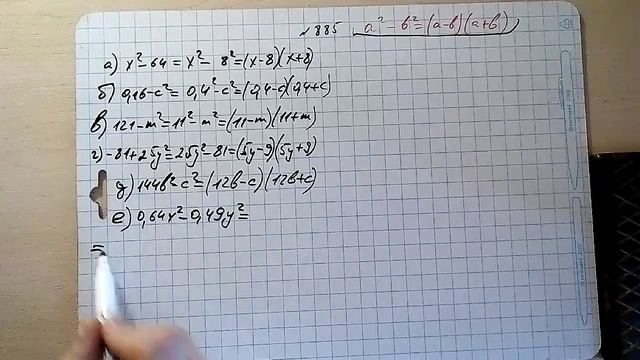 №885 a²-b²=(a-b)(a+b)
а) x²-64=x²-8²=(x-8)(x+8)
б) 0,16-c²=0,4²-c²=(0,4-c)(0,4+c)
в) 121-m²=11²-m²=(11-m)(11+m)
г) -81+25y²=25y²-81=(5y-9)(5y+9)
д) 144b²-c²=(12b-c)(12b+c)
е) 0,64x²-0,49y²=
=